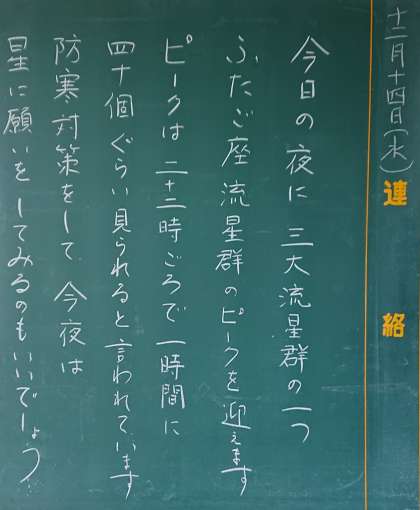 十二月十四日(水)
連絡
今日の夜に三大流星群の一つ
ふたご座流星群のピークを迎えます
ピークは二十二時ごろで一時間に
四十個ぐらい見られると言われています
防寒対策をして今夜は
星に願いをしてみるのもいいでしょう